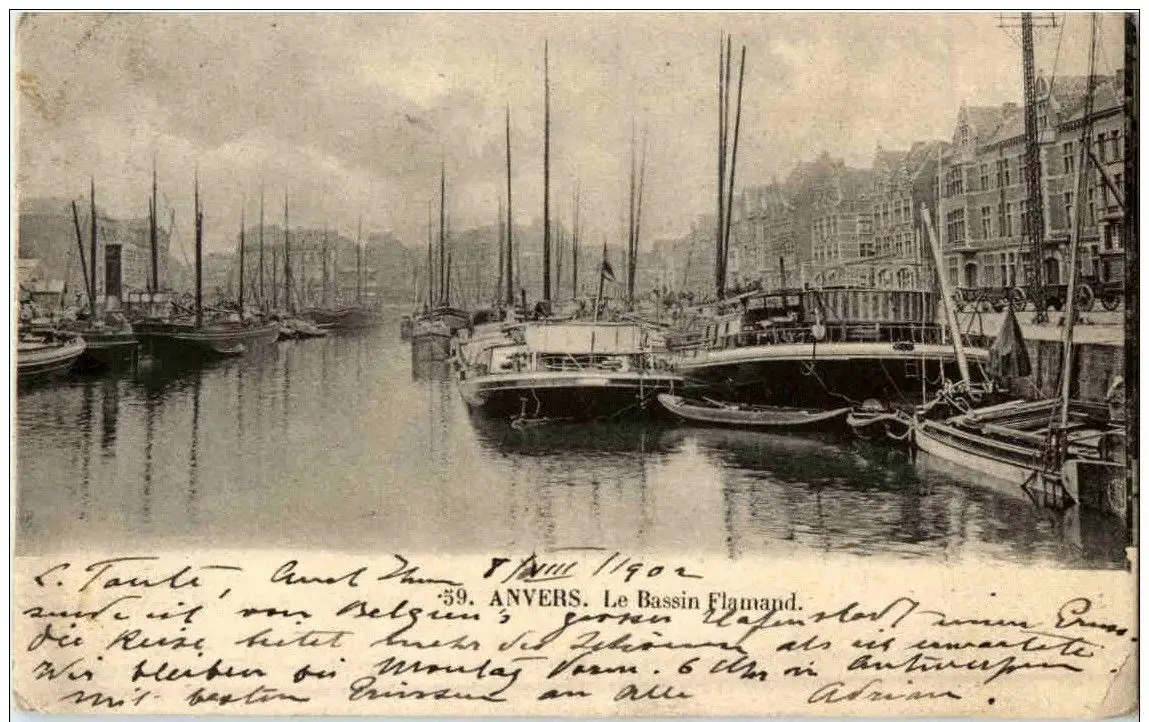 L. Tante, Auch Ihnen 8/VIII/1902
59. ANVERS. Le Bassin Flamand.
sende ich von Belgien's grosser Hafenstadt einen Gruss.
Die Reise bietet mehr des Schönen als ich erwartete.
Wir bleiben bis Montag Vorm. 6 Uhr in Antwerpen
mit besten Grüssen an Alle Adrian.